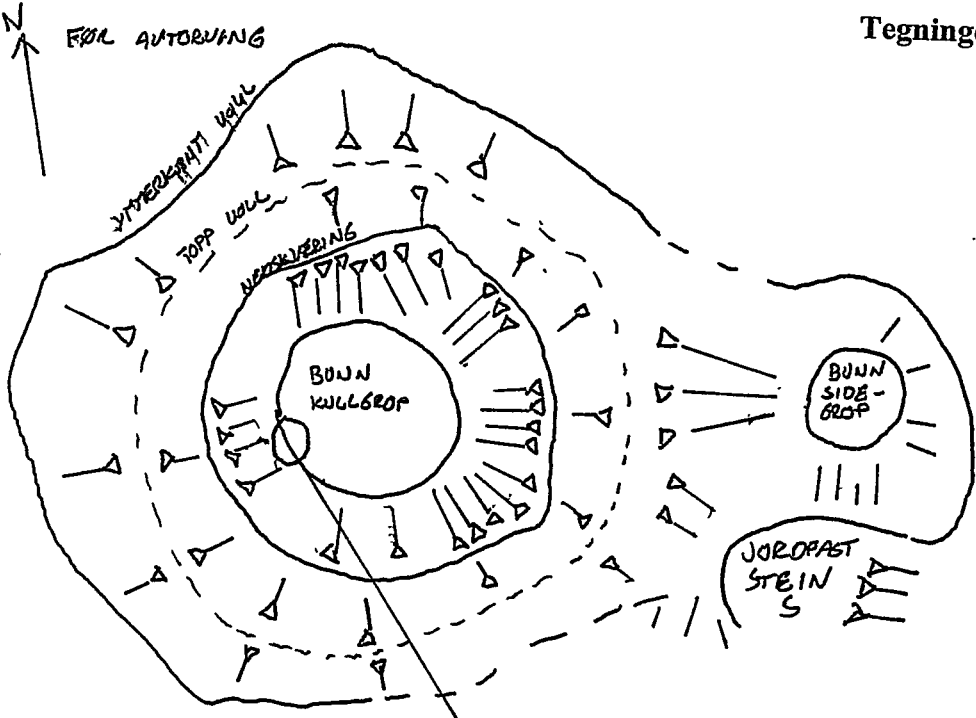 N
FØR AVTORVING
Tegning
YTTERKANT VOLL
TOPP VOLL
NEDSKJÆRING
BUNN
KULLGROP
BUNN
SIDE-
GROP
JORDFAST
STEIN
S